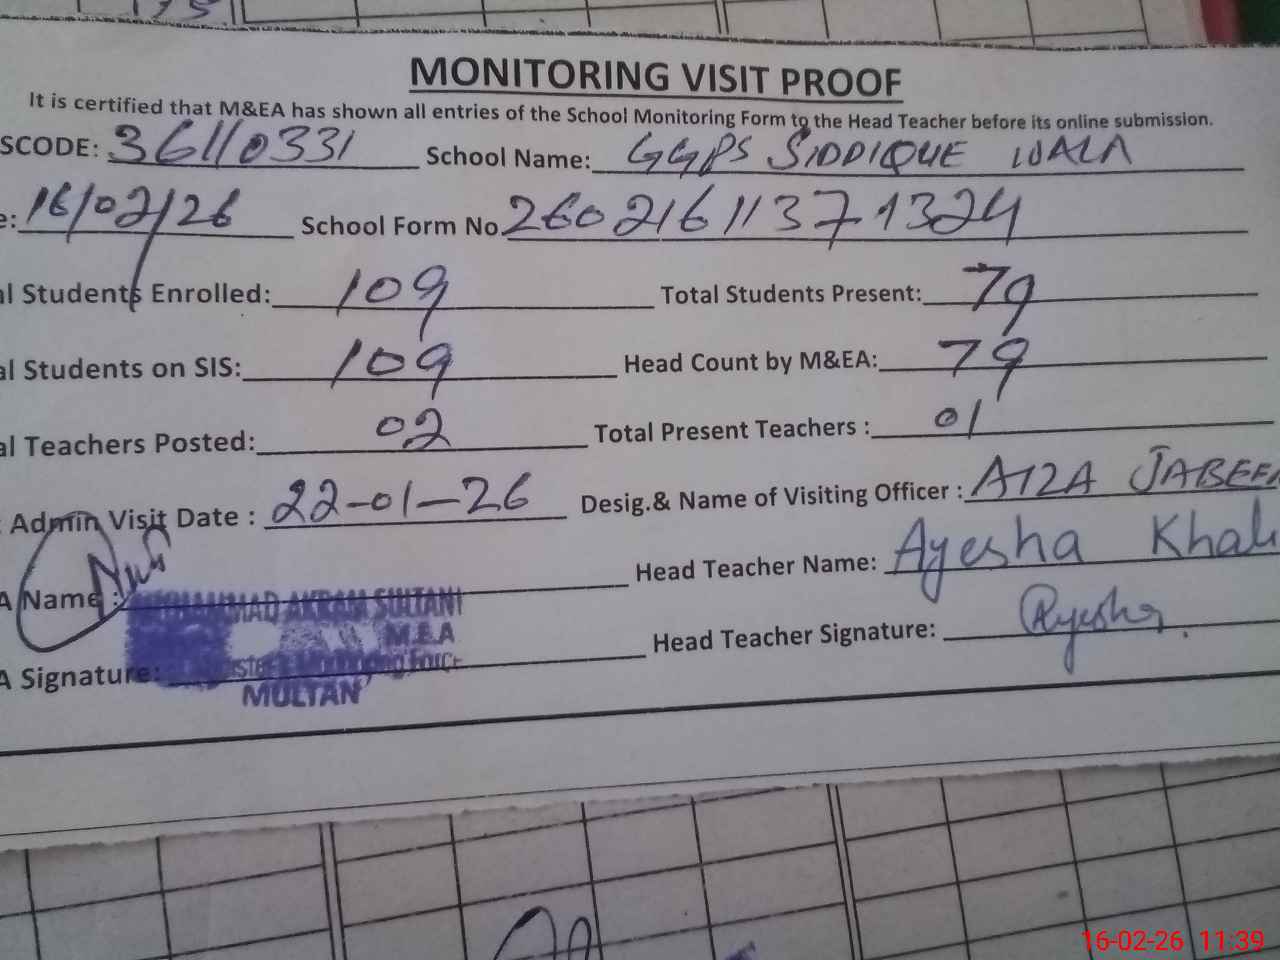 MONITORING VISIT PROOF
It is certified that M&EA has shown all entries of the School Monitoring Form to the Head Teacher before its online submission.
SCODE: 36110331 School Name: GGPS SIDDIQUE WALA
e: 16/02/26 School Form No 26021611371324
al Students Enrolled: 109 Total Students Present: 79
al Students on SIS: 109 Head Count by M&EA: 79
al Teachers Posted: 02 Total Present Teachers : 01
Admin Visit Date : 22-01-26 Desig.& Name of Visiting Officer : JABEEN
A Name : Head Teacher Name: Ayesha Khali
MUHAMMAD AKRAM SULTANI
M.E.A
A Signature: Head Teacher Signature: Ayesha
Monitoring Force
MULTAN
16-02-26 11:39